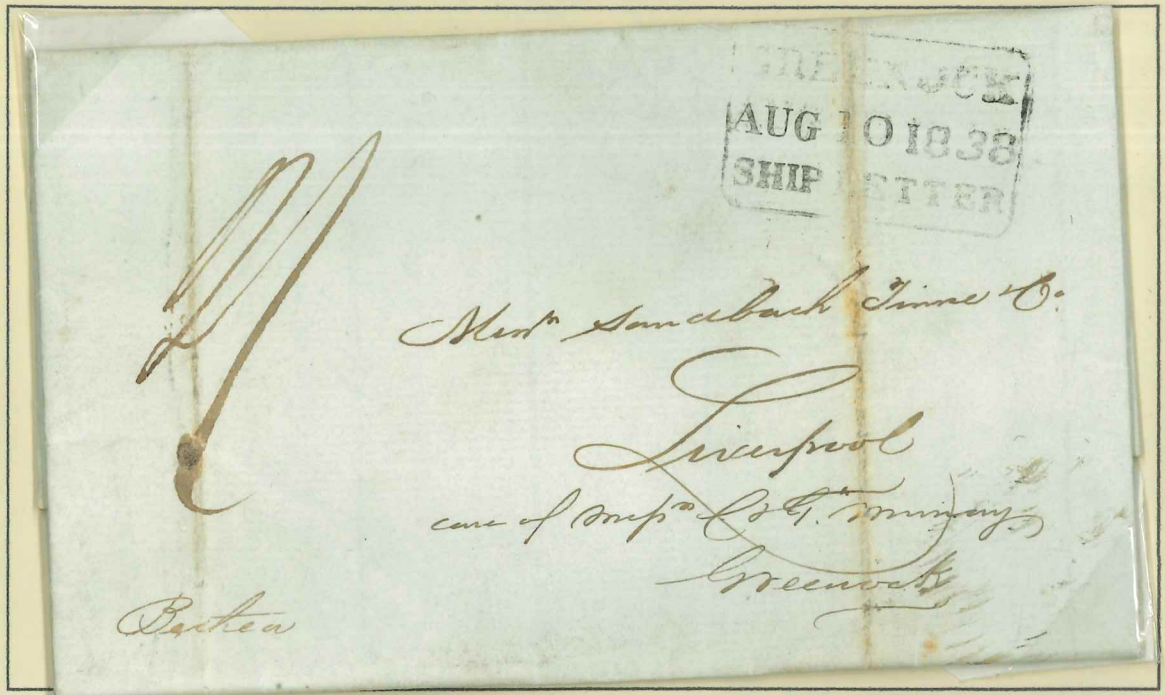 GREENOCK
AUG 10 1838
SHIP LETTER
Messrs Sandbach Tinne & Co.
Liverpool
care of Messrs
Murray
Greenock